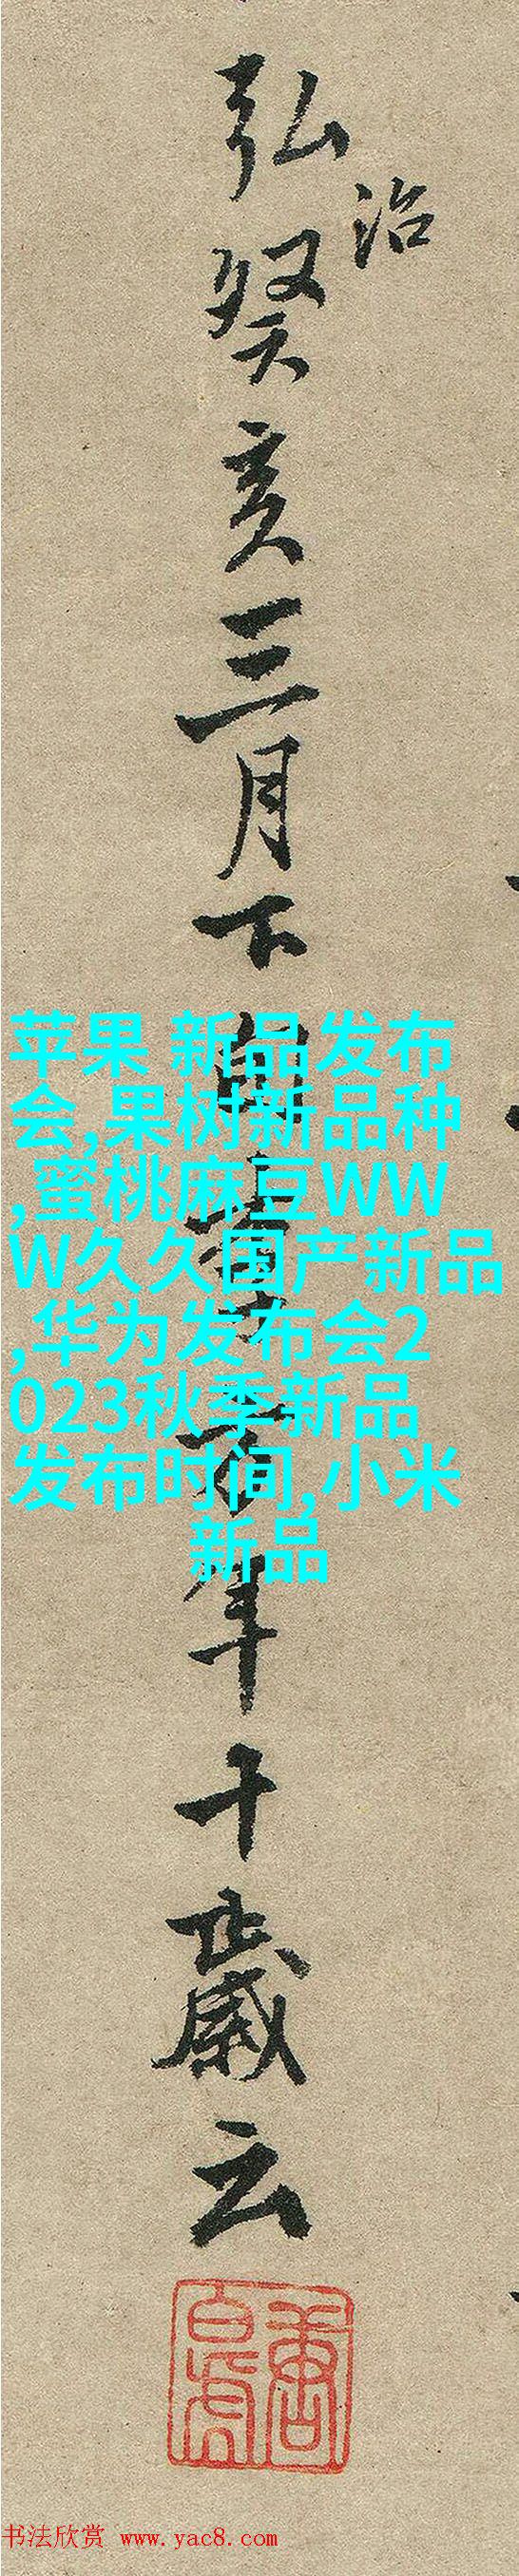 弘治癸亥三月下
年十歲云
苹果 新品发布
会,果树新品种
,蜜桃麻豆WW
W久久国产新品
,华为发布会2
023秋季新品
发布时间,小米
新品
唐白虎
书法欣赏 www.yac8.com